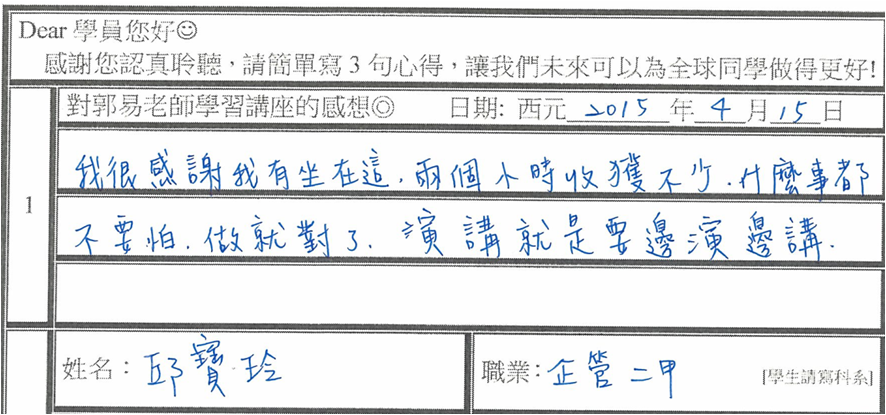 Dear 學員您好☺
感謝您認真聆聽，請簡單寫 3 句心得，讓我們未來可以為全球同學做得更好!
1
對郭易老師學習講座的感想◎ 日期: 西元 2015 年 4 月 15 日
我很感謝我有坐在這.兩個小時收獲不少.什麼事都
不要怕.做就對了.演講就是要邊演邊講.
姓名：邱寶玲 職業：企管二甲 [學生請寫科系]